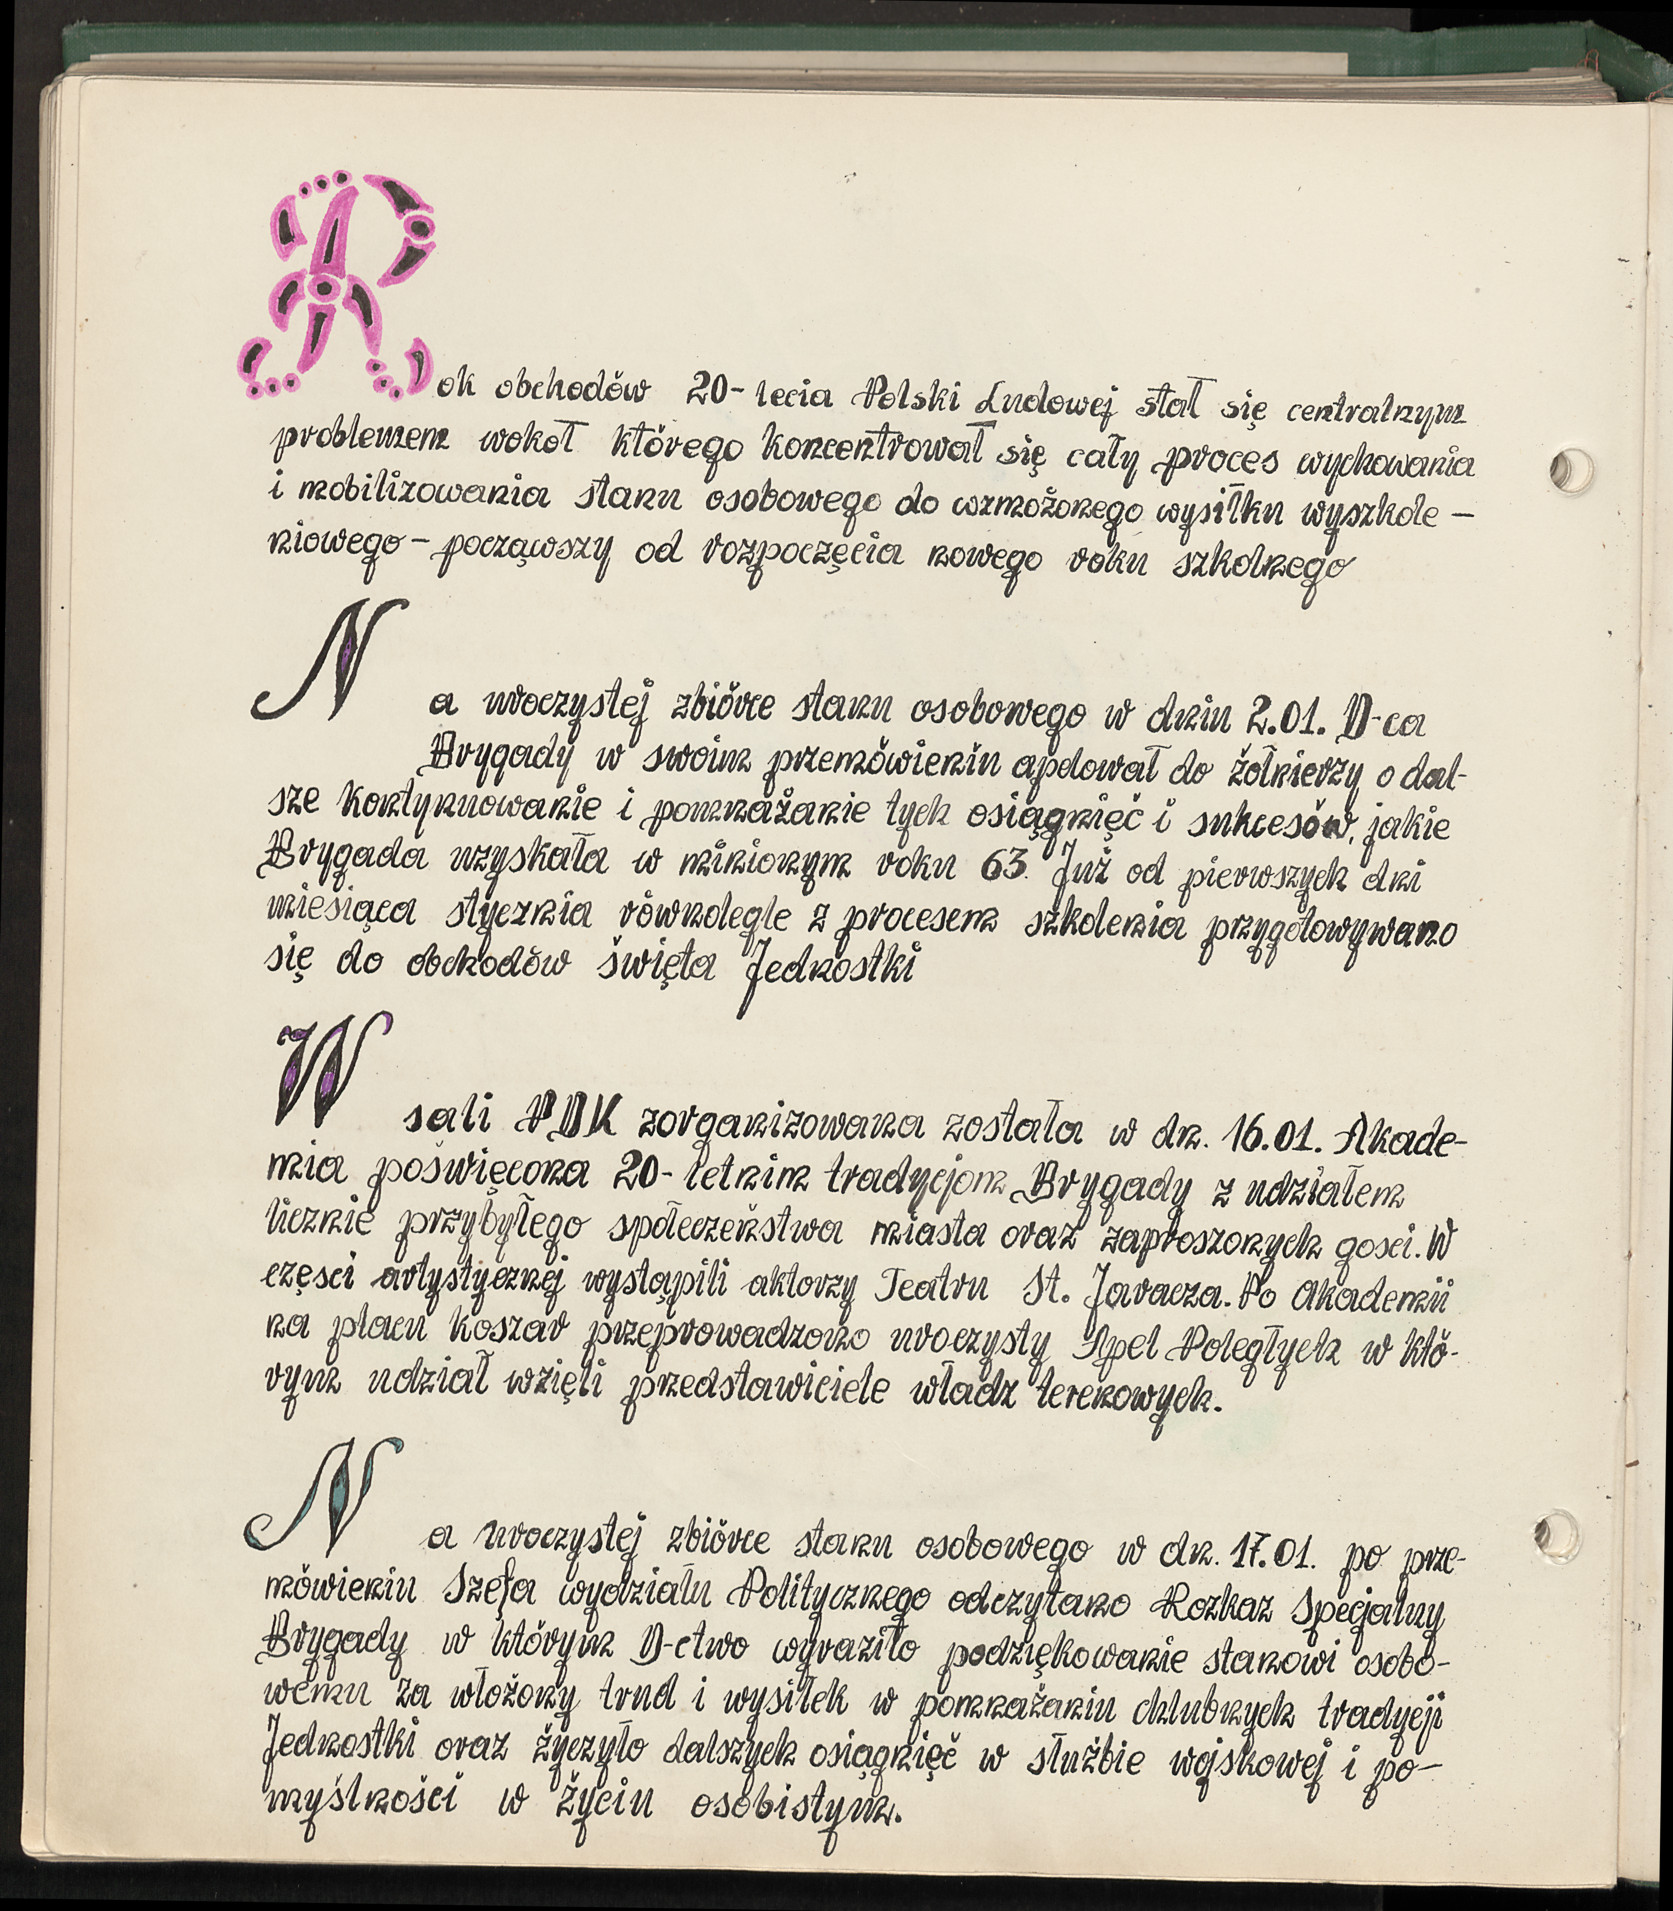 Rok obchodów 20-lecia Polski Ludowej stał się centralnym
problemem wokoł którego koncentrował się cały proces wychowania
i mobilizowania stanu osobowego do wzmożonego wysiłku wyszkole-
niowego - począwszy od rozpoczęcia nowego roku szkolnego
Na uroczystej zbiórce stanu osobowego w dniu 2.01. D-ca
Brygady w swoim przemówieniu apelował do żołnierzy o dal-
sze kontynuowanie i pomnażanie tych osiągnięć i sukcesów, jakie
Brygada uzyskała w minionym roku 63. Już od pierwszych dni
miesiąca stycznia równolegle z procesem szkolenia przygotowywano
się do obchodów święta Jednostki
W sali PDK zorganizowana została w dn. 16.01. Akade-
mia poświęcona 20-letnim tradycjom Brygady z udziałem
licznie przybyłego społeczeństwa miasta oraz zaproszonych gosci. W
częsci artystycznej wystąpili aktorzy Teatru St. Jaracza. Po Akademii
na placu koszar przeprowadzono uroczysty Apel Poległych w któ-
rym udział wzięli przedstawiciele władz terenowych.
Na uroczystej zbiórce stanu osobowego w dn. 17.01. po prze-
mówieniu Szefa wydziału Politycznego odczytano Rozkaz Specjalny
Brygady w którym D-ctwo wyraziło podziękowanie stanowi osobo-
wemu za włożony trud i wysiłek w pomnażaniu chlubnych tradycji
Jednostki oraz życzyło dalszych osiągnięć w służbie wojskowej i po-
myślności w życiu osobistym.